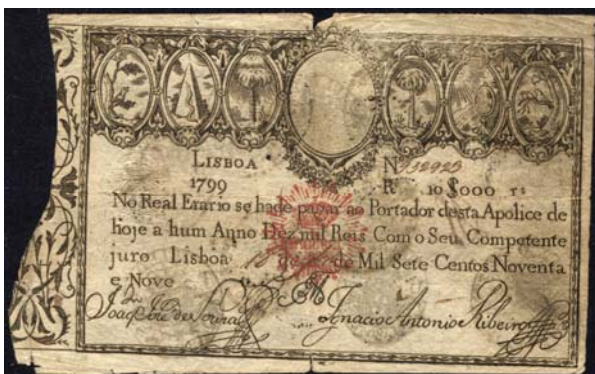 LISBOA N
1799 R 10$000 rs
No Real Erario se hade pagar ao Portador desta Apolice de
hoje a hum Anno Dez mil Reis Com o Seu Competente
juro Lisboa de de Mil Sete Centos Noventa
e Nove
Ignacio Antonio Ribeiro